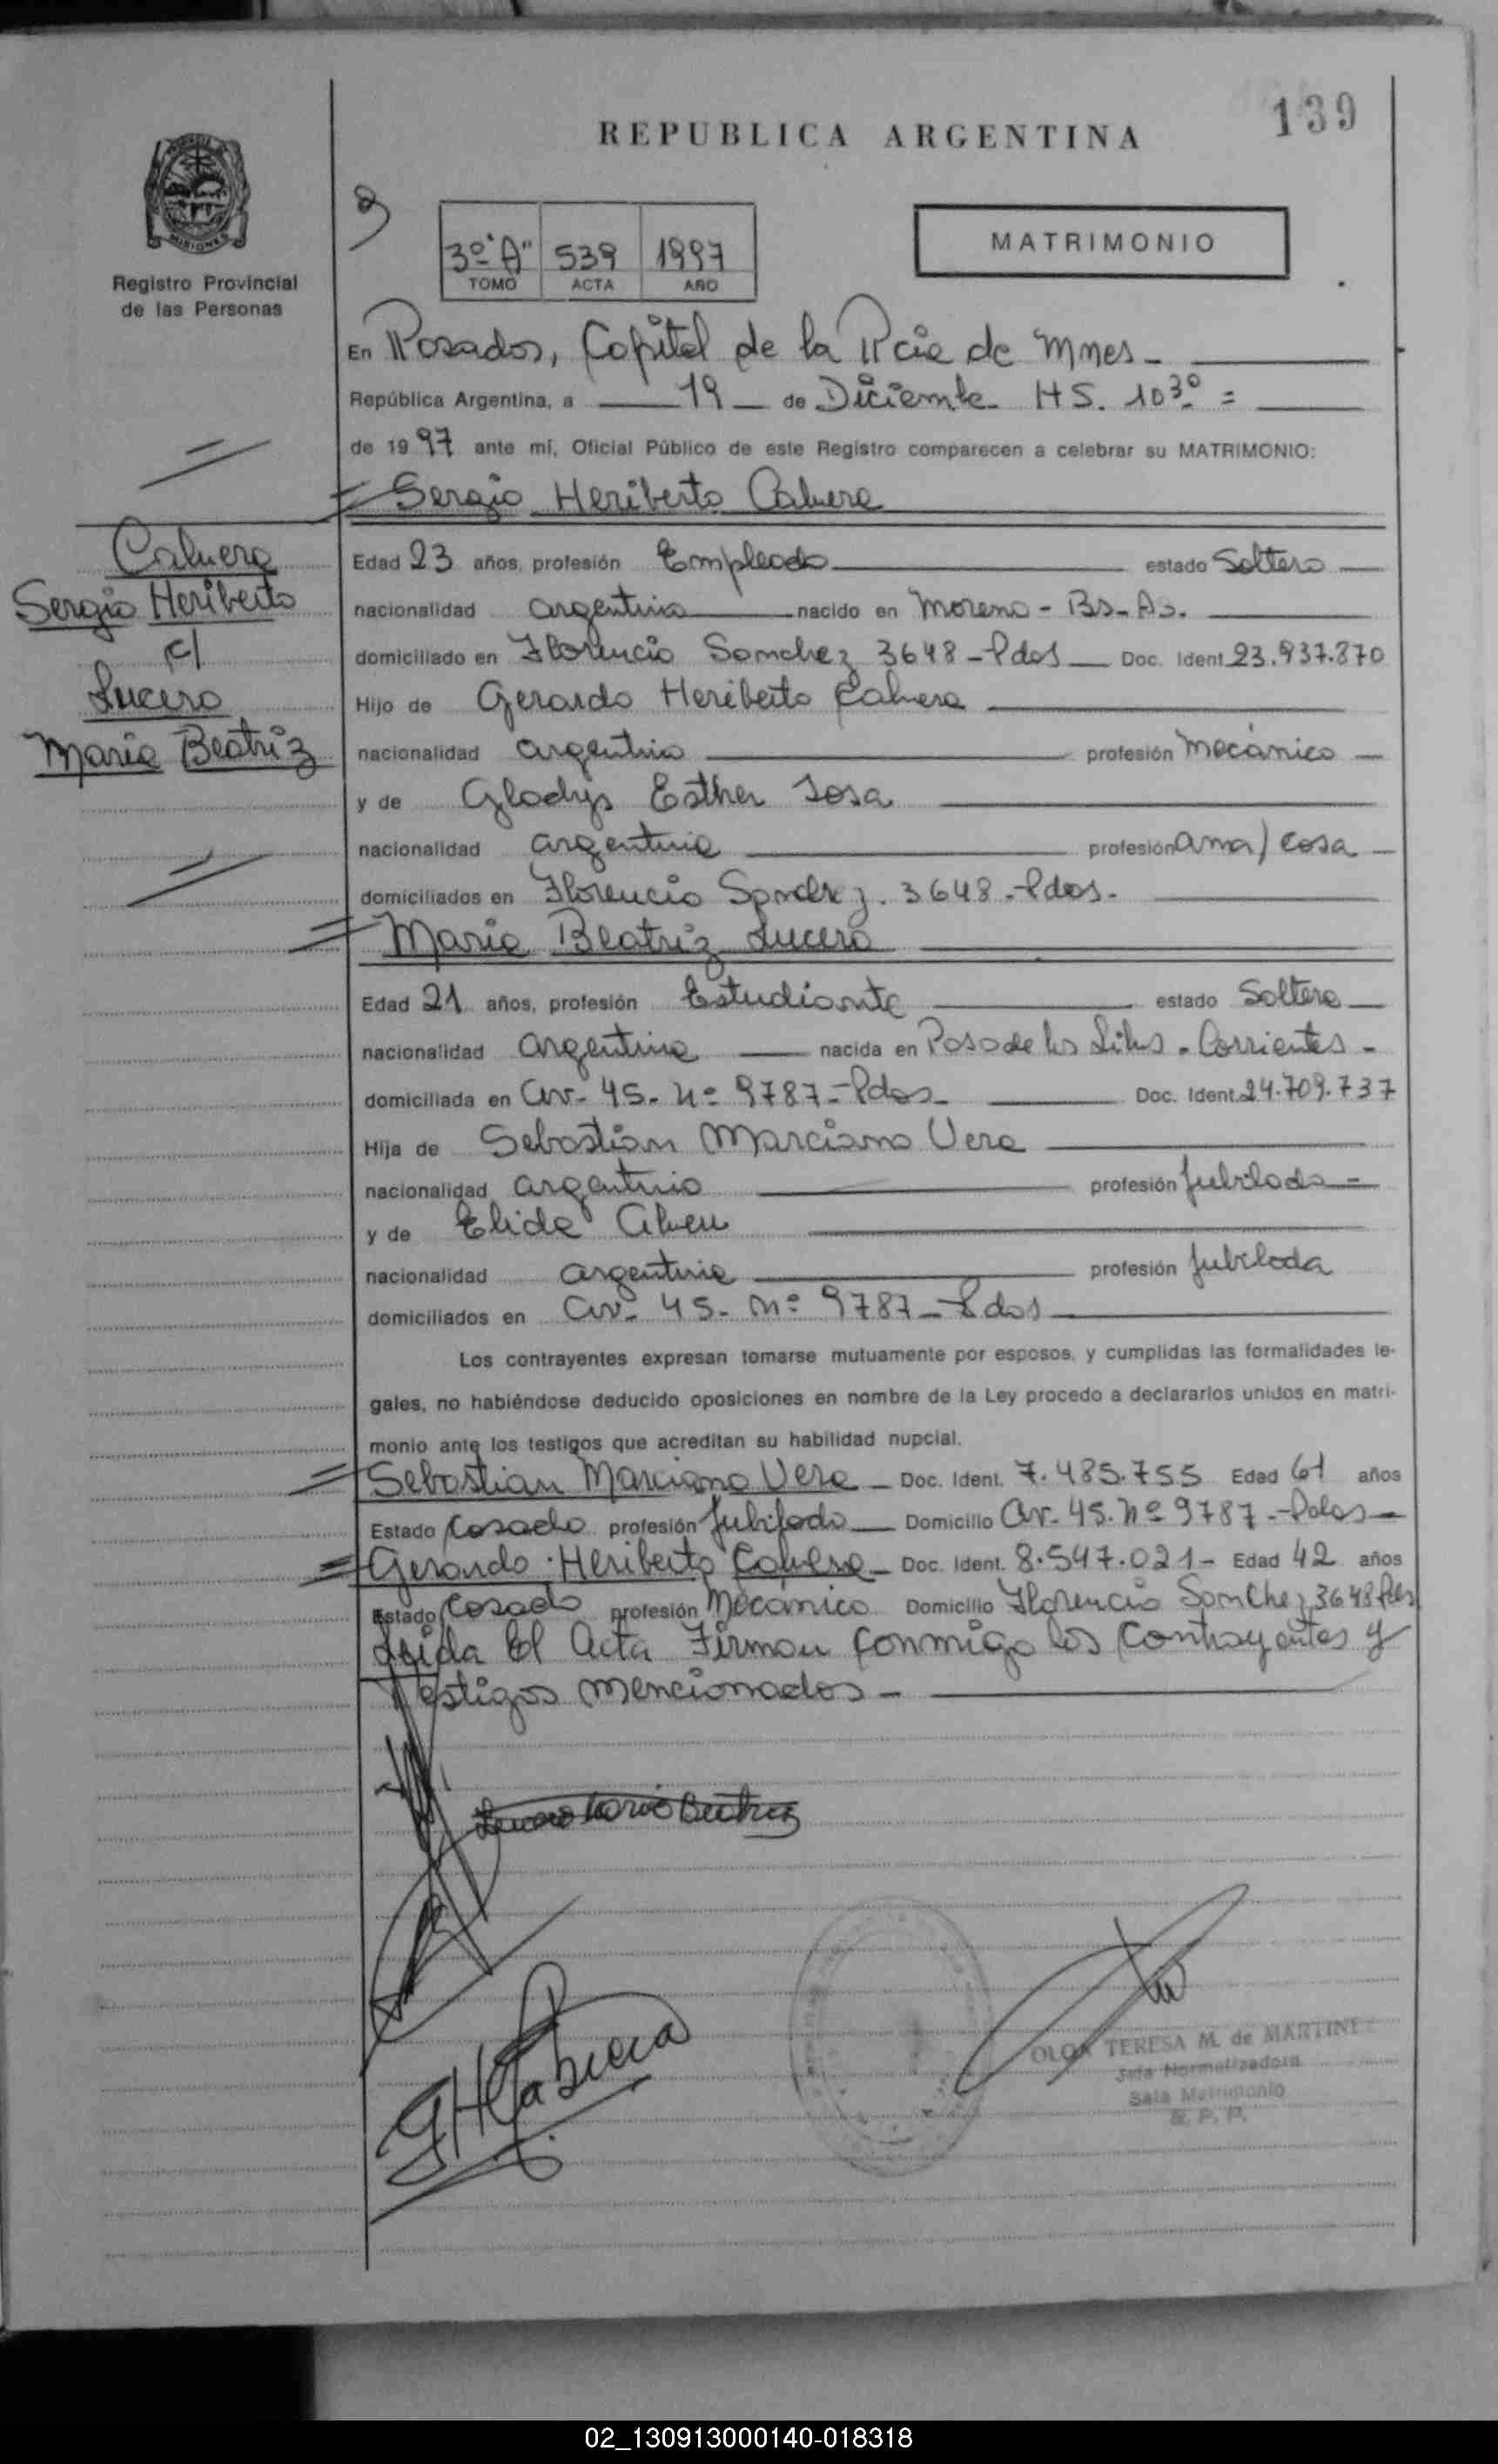 139
REPUBLICA ARGENTINA
MISIONES
Registro Provincial
de las Personas
3º "A" 539 1997
TOMO ACTA AÑO
MATRIMONIO
En Posadas, Capital de la Pcia de Mnes -
República Argentina, a 19 de Diciembre HS. 10 30 =
de 1997 ante mí, Oficial Público de este Registro comparecen a celebrar su MATRIMONIO:
Sergio Heriberto Cabrera
Cabrera
Sergio Heriberto
c/
Lucero
Maria Beatriz
Edad 23 años, profesión Empleado estado Soltero
nacionalidad argentina nacido en Moreno - Bs - As.
domiciliado en Florencio Sanchez 3648 - Pdas Doc. Ident. 23.937.870
Hijo de Gerardo Heriberto Cabrera
nacionalidad argentino profesión Mecánico
y de Gladys Esther Sosa
nacionalidad argentina profesión ama/casa
domiciliados en Florencio Sanchez. 3648 - Pdas.
Maria Beatriz Lucero
Edad 21 años, profesión Estudiante estado Soltera
nacionalidad argentina nacida en Paso de los Libres - Corrientes -
domiciliada en Av. 45. Nº 9787 - Pdas - Doc. Ident. 24.709.737
Hija de Sebastian Marciano Vera
nacionalidad argentino profesión Jubilado -
y de Elida Abreu
nacionalidad argentina profesión Jubilada
domiciliados en Av. 45. Nº 9787 - Pdas
Los contrayentes expresan tomarse mutuamente por esposos, y cumplidas las formalidades le-
gales, no habiéndose deducido oposiciones en nombre de la Ley procedo a declararlos unidos en matri-
monio ante los testigos que acreditan su habilidad nupcial.
Sebastian Marciano Vera - Doc. Ident. 7.485.755 Edad 61 años
Estado Casado profesión Jubilado Domicilio Av. 45. Nº 9787 - Pdas -
Gerardo Heriberto Cabrera - Doc. Ident. 8.547.021 - Edad 42 años
Estado Casado profesión Mecánico Domicilio Florencio Sanchez 3648 Pdas
Leida El Acta Firman conmigo los Contrayentes y
Testigos mencionados -
Lucero Maria Beatriz
GHCabrera
OLGA TERESA M. de MARTINEZ
Jefa Normalizadora
Sala Matrimonio
R. P. P.
02_130913000140-018318